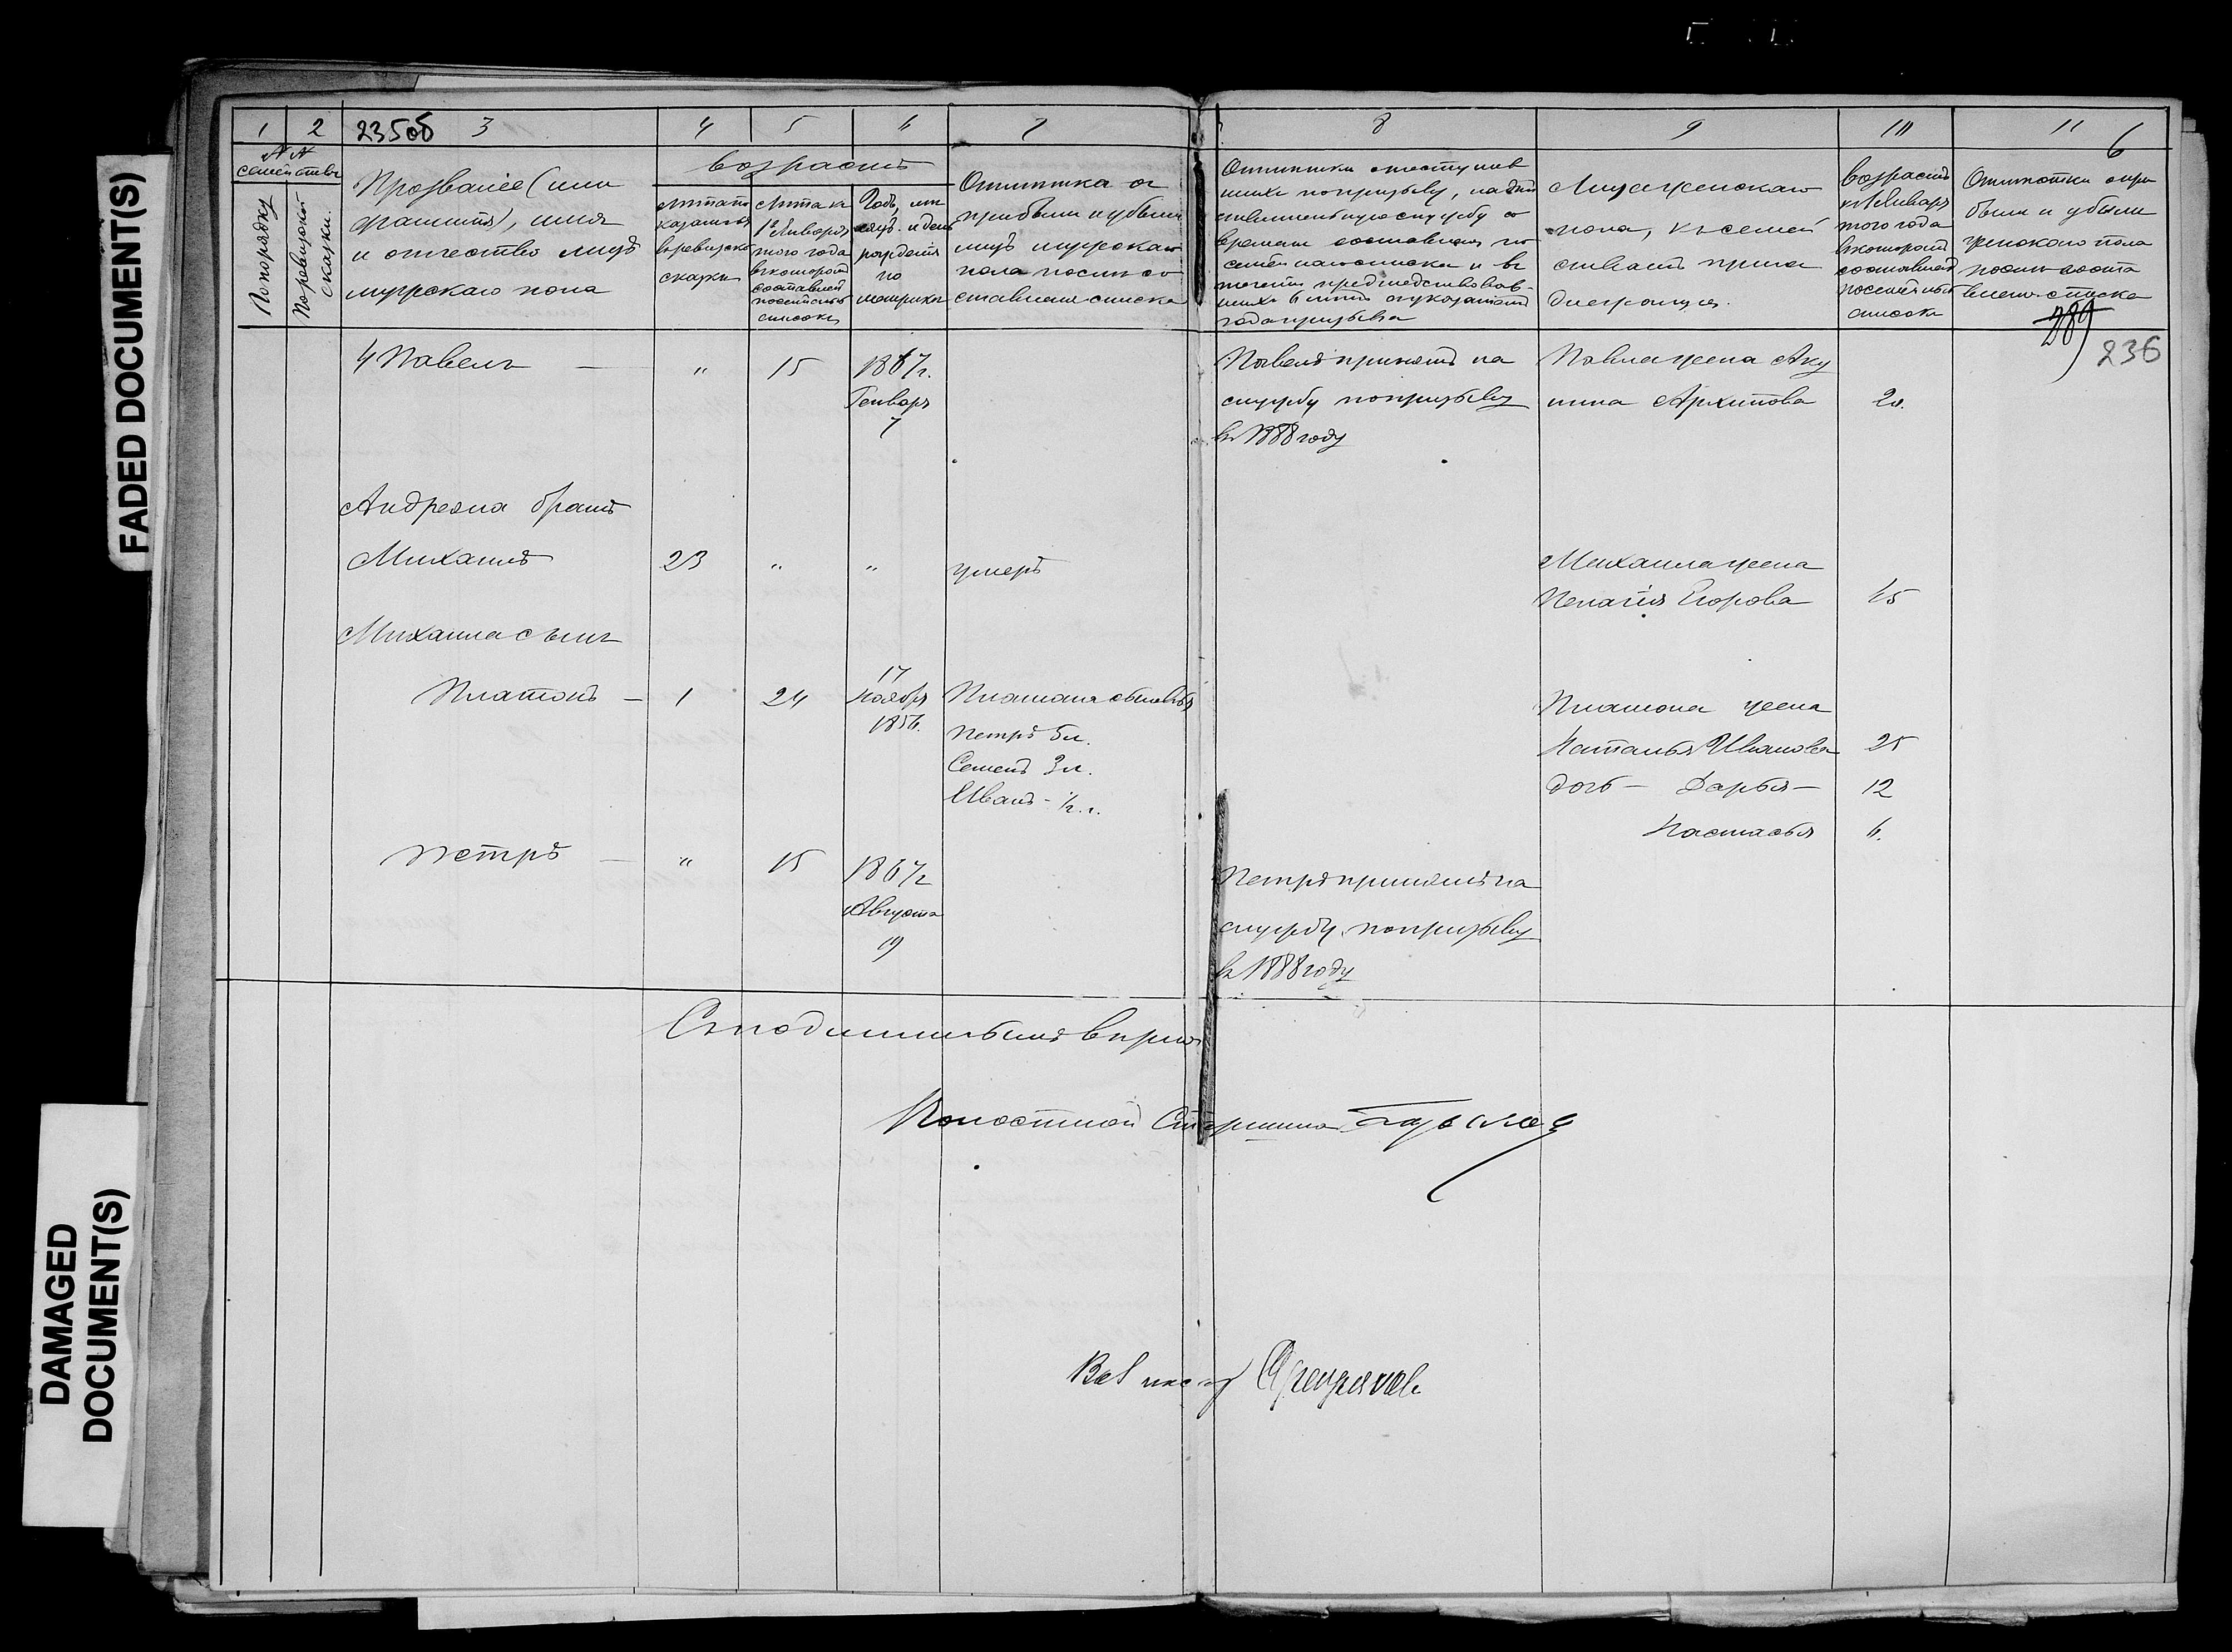 FADED DOCUMENT(S)
DAMAGED
DOCUMENT(S)
1 2 235об 3 4 5 6 7 8 9 10 11
6
№№
семейства
По порядку
По ревизской
сказки.
Прозваніе (или
фамилія), имя
и отчество лицъ
мужскаго пола
Возрастъ
Лѣта по
казанныя
въ ревизской
сказки
Лѣта къ
1е Января
того года
въ которой
составленъ
посемейной
списокъ
Годъ, мѣ
сяцъ и день
рожденія
по
метрикѣ
Отмѣтка о
прибыли и убыли
лицъ мужскаго
пола послѣ со
ставленія списка
Отмѣтки о поступив
шихъ по призыву, на дѣй
ствительную службу со
времени составленія по
семейнаго списка и въ
теченіи предшедствовав-
шихъ 6 лѣтъ съ указаніемъ
года призыва
Лица женскаго
пола, къ семей
ству принад
Возрастъ
къ 1 Января
того года
въ которой
составленъ
посемейный
списокъ
Отмѣтки о при
были и убыли
женскаго пола
послѣ соста
вленія списка
289
236
4 Павелъ — " 15 1867 г.
Генваря
7
Павелъ принятъ на
службу по призыву
въ 1888 году
Павла жена Аку
лина Архипова 20.
Андреяна братъ
Михаилъ 23 " " умеръ
Михаила жена
Пелагія Егорова 45
Михаила сынъ
Платонъ — 1 24 17
Ноября
1856.
Платона сыновья
Петръ 5 л.
Семенъ 3 л.
Иванъ - ½ г.
Платона жена
Наталья Иванова 25
дочь — Дарья — 12
Настасья 6.
Петръ — " 15 1867 г
Августа
19
Петръ принятъ на
службу по призыву
въ 1888 году
Съ подлиннымъ вѣрно
Волостной Старшина
Вол писарь